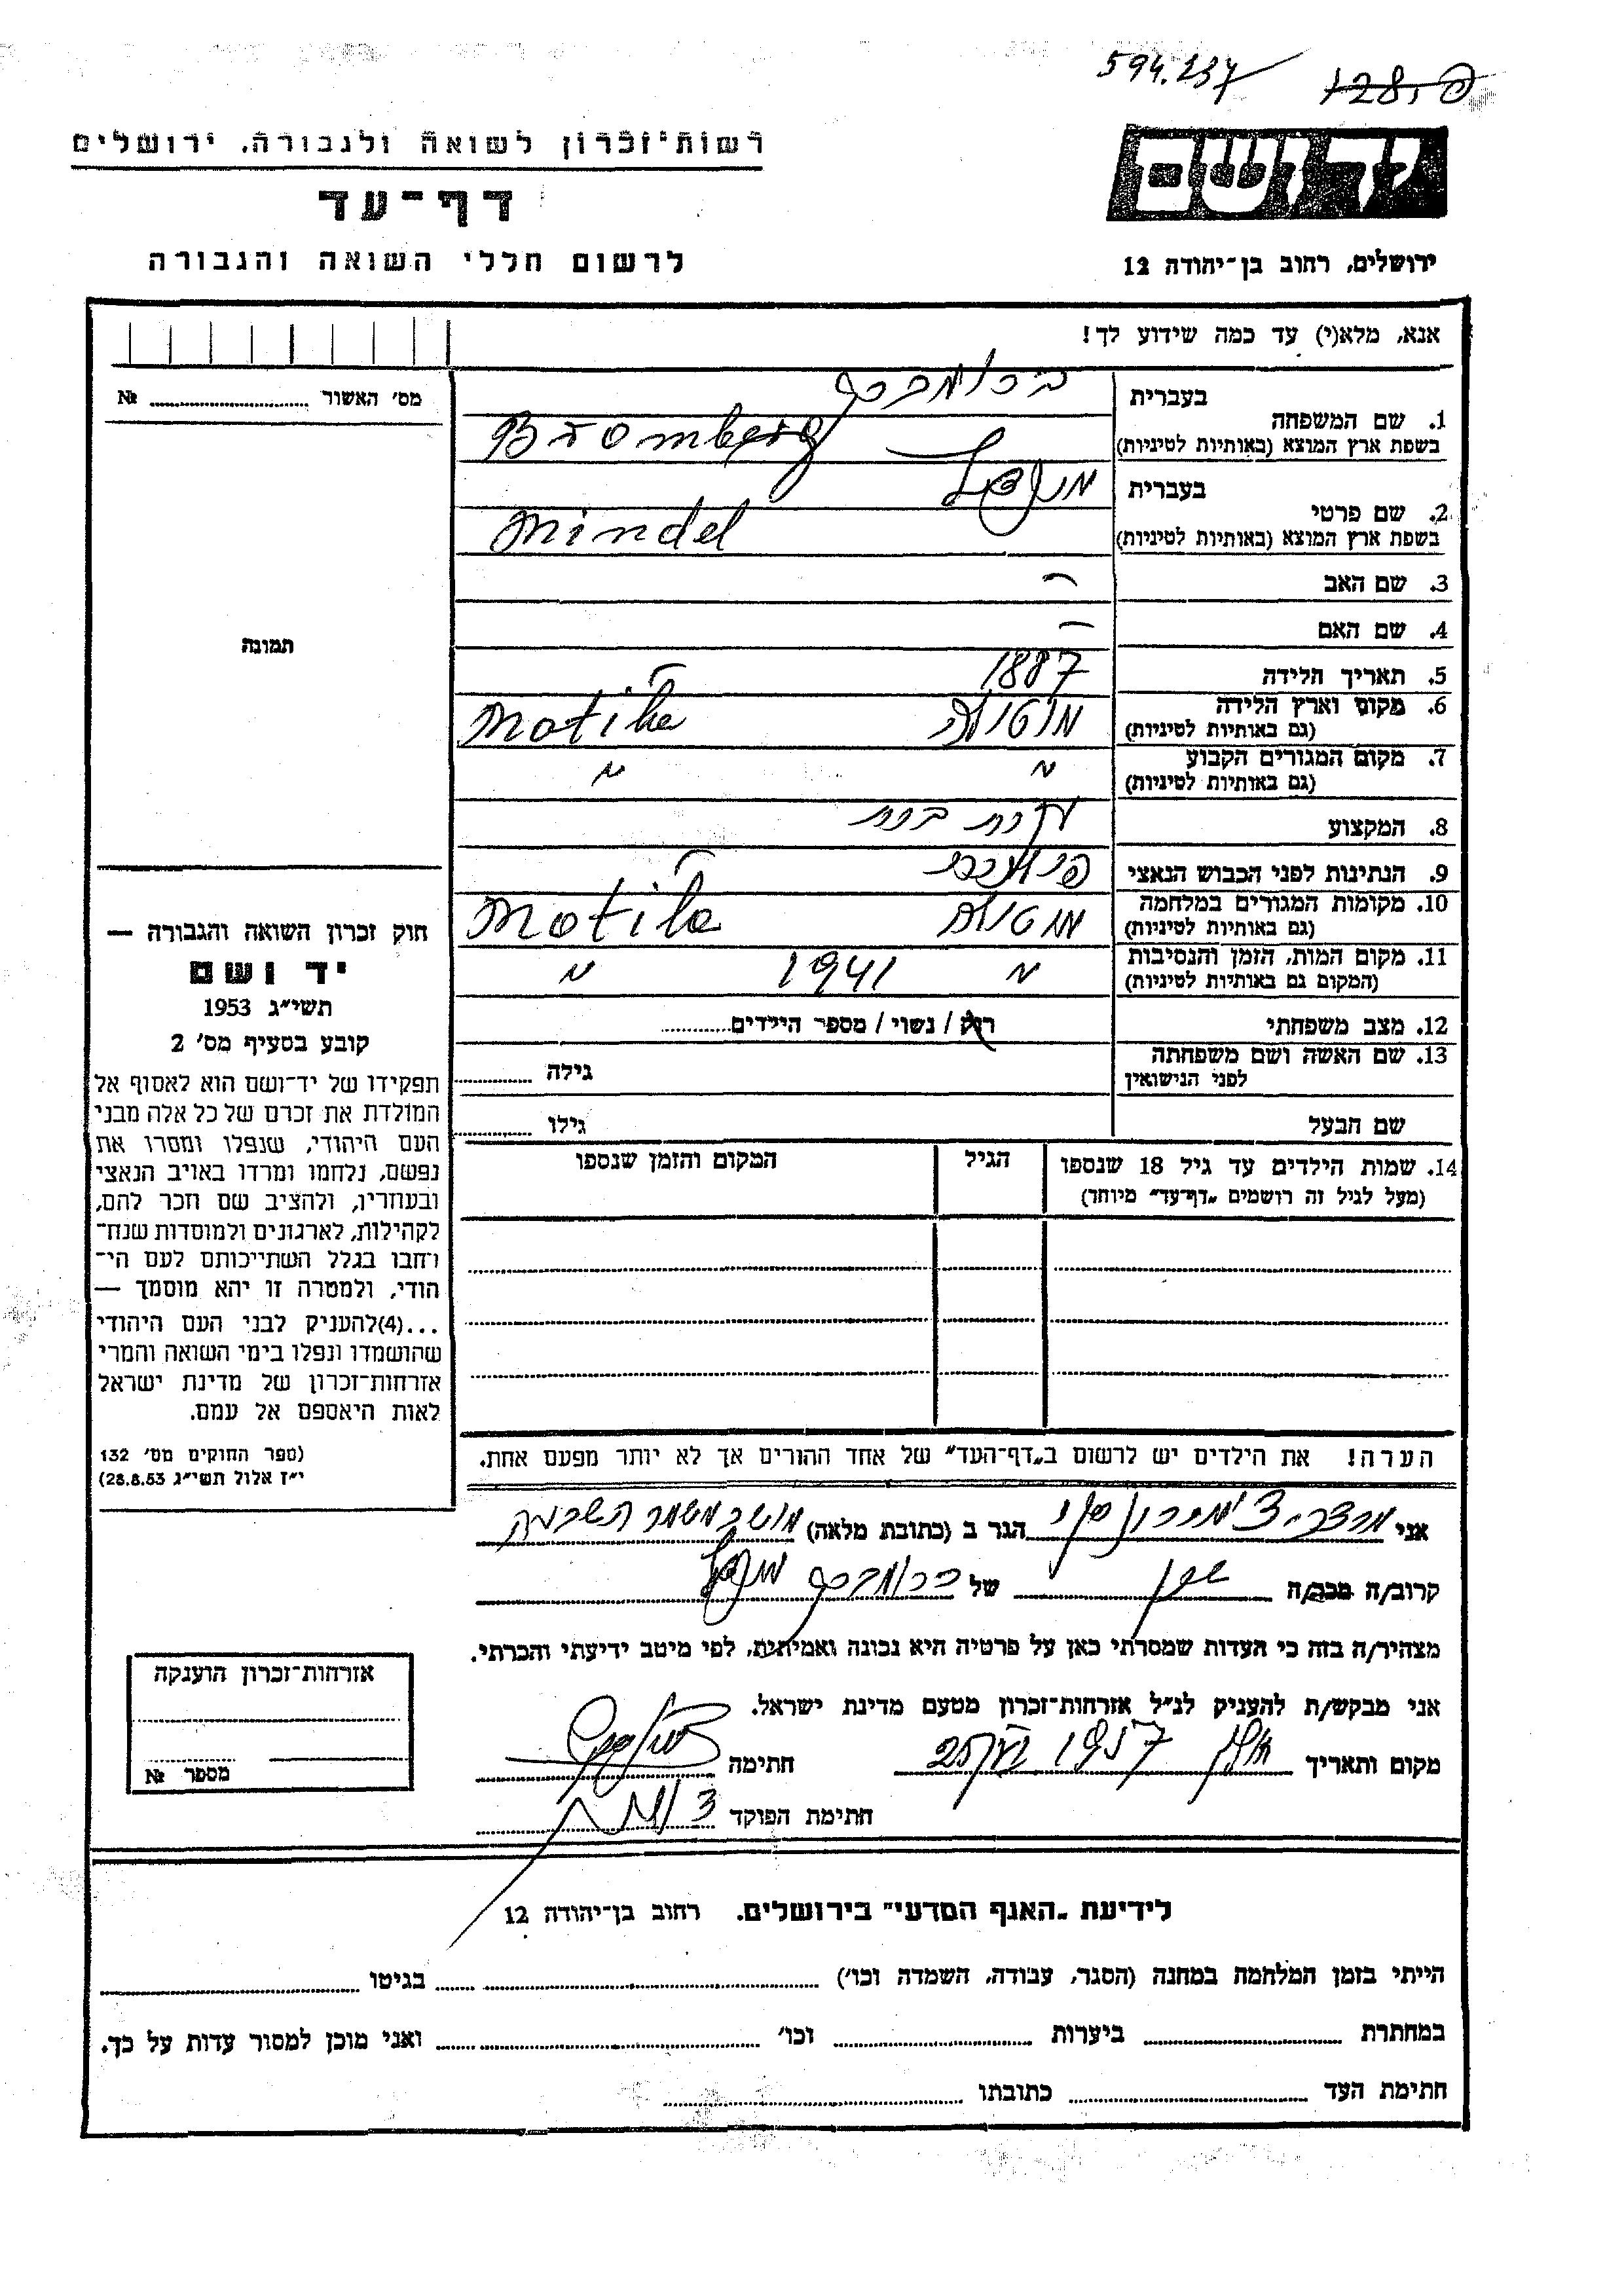 594.237 128.פ
יד ושם
רשות־זכרון לשואה ולגבורה, ירושלים
דף־עד
לרשום חללי השואה והגבורה
ירושלים, רחוב בן־יהודה 12
אנא, מלא(י) עד כמה שידוע לך!
מס' האשור № 
תמונה
1. שם המשפחה
בעברית ברומברג
בשפת ארץ המוצא (באותיות לטיניות) Bromberg
2. שם פרטי
בעברית מינדל
בשפת ארץ המוצא (באותיות לטיניות) Mindel
3. שם האב —
4. שם האם —
5. תאריך הלידה 1887
6. מקום וארץ הלידה
(גם באותיות לטיניות) Motile
7. מקום המגורים הקבוע
(גם באותיות לטיניות) " "
8. המקצוע עקרת בית
9. הנתינות לפני הכבוש הנאצי
10. מקומות המגורים במלחמה
(גם באותיות לטיניות) Motile
11. מקום המות, הזמן והנסיבות
(המקום גם באותיות לטיניות) " 1941 "
12. מצב משפחתי רוק / נשוי / מספר הילדים
13. שם האשה ושם משפחתה
לפני הנישואין גילה
שם הבעל גילו
14. שמות הילדים עד גיל 18 שנספו
(מעל לגיל זה רושמים „דף־עד" מיוחד)
הגיל
המקום והזמן שנספו
הערה! את הילדים יש לרשום ב„דף־העד" של אחד ההורים אך לא יותר מפעם אחת.
חוק זכרון השואה והגבורה —
יד ושם
תשי״ג 1953
קובע בסעיף מס' 2
תפקידו של יד־ושם הוא לאסוף אל
המולדת את זכרם של כל אלה מבני
העם היהודי, שנפלו ומסרו את
נפשם, נלחמו ומרדו באויב הנאצי
ובעוזריו, ולהציב שם וזכר להם,
לקהילות, לארגונים ולמוסדות שנח־
רבו בגלל השתייכותם לעם הי־
הודי, ולמטרה זו יהא מוסמך —
...(4)להעניק לבני העם היהודי
שהושמדו ונפלו בימי השואה והמרי
אזרחות־זכרון של מדינת ישראל
לאות היאספם אל עמם.
(ספר החוקים מס' 132
י״ז אלול תשי״ג 28.8.53)
אני מרדכי הגר ב (כתובת מלאה) מושב משמר השבעה
קרוב/ה מכר/ה שכן של ברומברג מינדל
מצהיר/ה בזה כי העדות שמסרתי כאן על פרטיה היא נכונה ואמיתית, לפי מיטב ידיעתי והכרתי.
אני מבקש/ת להעניק לנ״ל אזרחות־זכרון מטעם מדינת ישראל.
מקום ותאריך 1957 חתימה
חתימת הפוקד
אזרחות־זכרון הוענקה
מספר №
לידיעת „האגף המדעי" בירושלים. רחוב בן־יהודה 12
הייתי בזמן המלחמה במחנה (הסגר, עבודה, השמדה וכו') בגיטו
במחתרת ביערות וכו' ואני מוכן למסור עדות על כך.
חתימת העד כתובתו